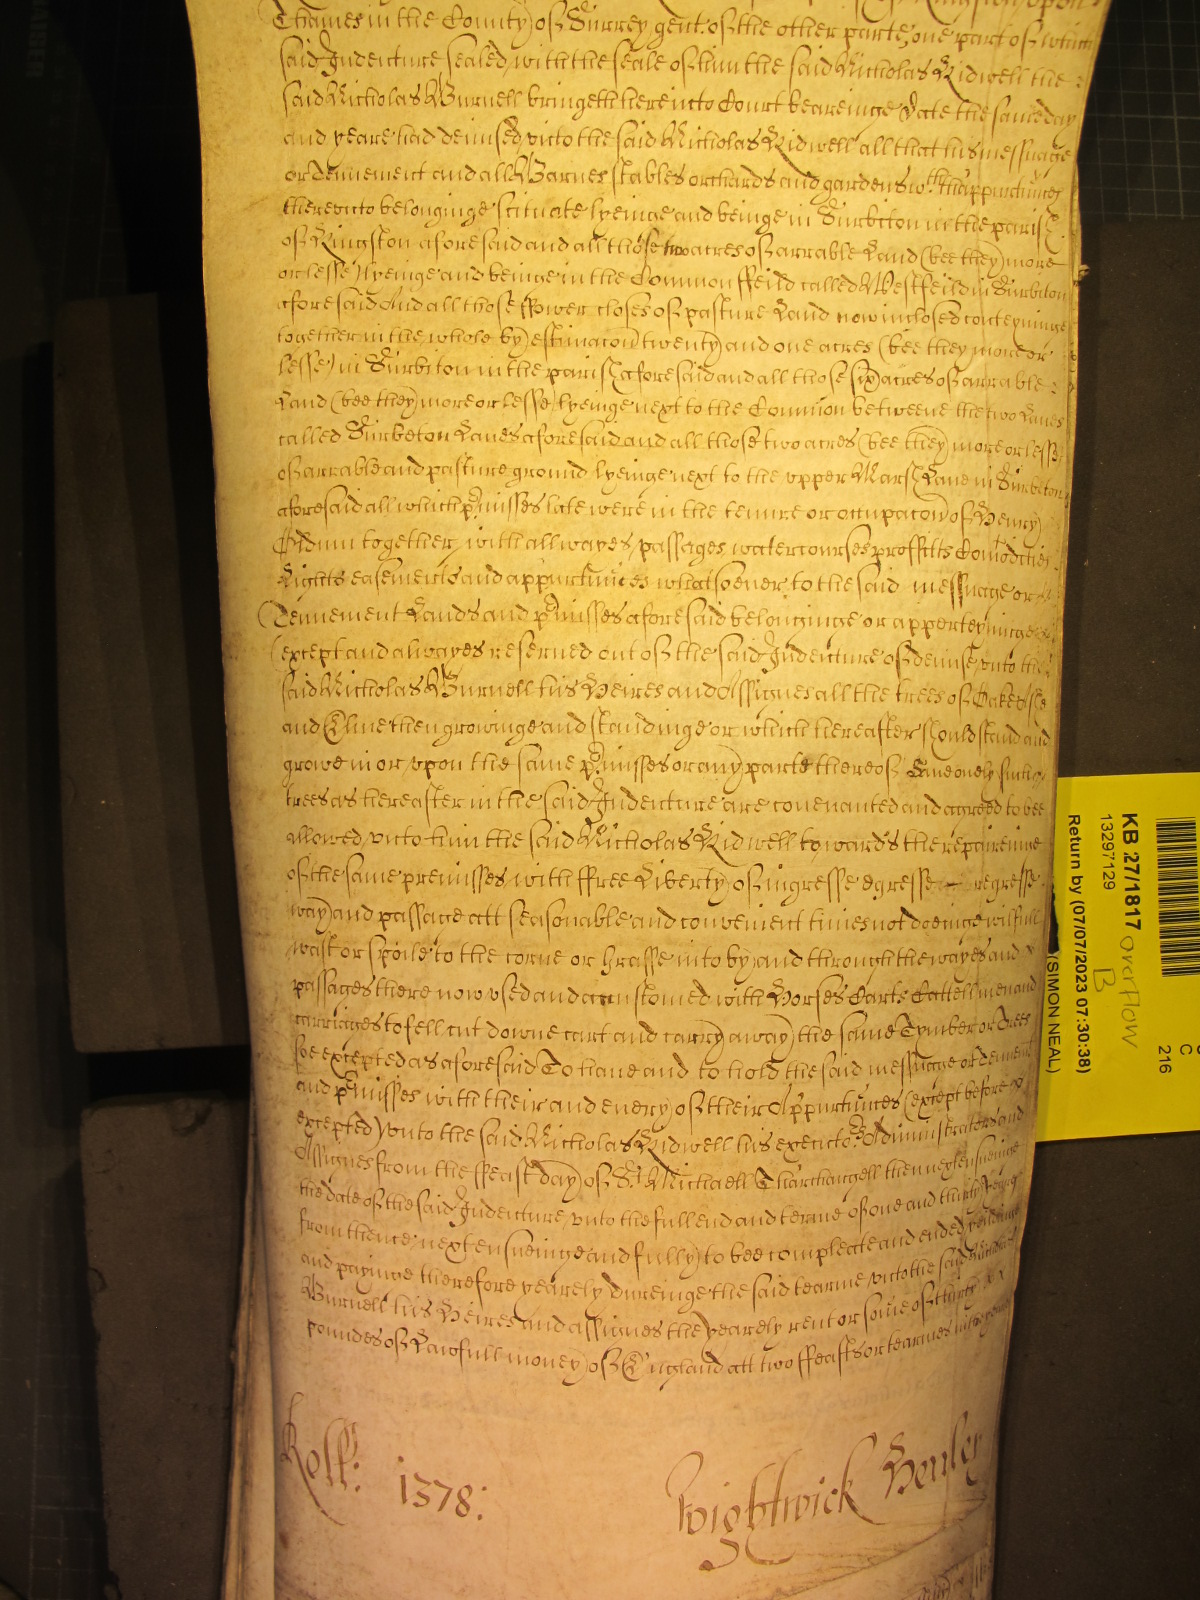 Thames in the County of Surrey gent. of the other parte, one part of which
said Indenture sealed with the seale of him the said Nicholas Ridwell the
said Nicholas Burnell bringeth here into Court beareinge Date the same day
and yeare had demised vnto the said Nicholas Ridwell all that his messuage
or Tennement and all Barnes stables orchards and gardens wth thappurtunces
therevnto belonginge scituate lyeinge and beinge in Surbiton in the parish
of Kingston aforesaid and all those two acres of arrable Land (bee they) more
or lesse lyeinge and beinge in the Common ffeild called Westfeild in Surbiton
aforesaid And all those ffower closes of pasture Land now inclosed conteyninge
together in the whole by estimacon twenty and one acres (bee they more or
lesse) in Surbiton in the parish aforesaid and all those six acres of arrable
Land (bee they) more or lesse lyeinge next to the Common betweene the two Lanes
called Surbeton Lanes aforesaid and all those two acres (bee they) more or lesse
of arrable and pasture ground lyeinge next to the vpper Marsh Lane in Surbeton
aforesaid all which pmisses late were in the tenure or occupacon of Henry
together with all wayes passages watercourses proffitts Comodities
Rights easements and appurtunces whatsoever to the said messuage or
Tennement Lands and pmisses aforesaid belonginge or apperteyninge
(except and alwayes reserved out of the said Indenture of demise vnto the
said Nicholas Burnell his Heires and Assignes all the trees of Oake Ashe
and Elme then growinge and standinge or which hereafter should stand and
growe in or vpon the same pmisses or any parte thereof Saue onely such
trees as hereafter in the said Indenture are covenanted and agreed to bee
allowed vnto him the said Nicholas Ridwell towards the repaireinge
of the same premisses with ffree Liberty of ingresse egresse regresse
way and passage att seasonable and convenient times not doeinge wilfull
wast or spoile to the corne or Grasse into by and through the wayes and
passages there now vsed and accustomed with Horses Carts Cattell men and
carriages to fell cut downe cart and carry away the same Tymber or Trees
soe excepted as aforesaid To haue and to hold the said messuage or Tenement
and pmisses with their and euery of their Appurtunces (except before
excepted) vnto the said Nicholas Ridwell his executors Administrators and
Assignes from the ffeast day of St. Michaell Tharchangell then next ensueinge
the date of the said Indenture vnto the full end and terme of one and thirty yeares
from thence next ensueinge and fully to bee compleate and ended yeildinge
and payinge therefore yearely dureinge the said tearme vnto the said Nicholas
Burnell his Heires and assignes the yearely rent or some of thirty
poundes of Lawfull money of England att two ffeasts or tearmes in the yeare
Roll: 1378:
Wightwick Henley
KB 27/1817
13297129
Return by (07/07/2023 07:30:38)
(SIMON NEAL)
overflow
B
C
216